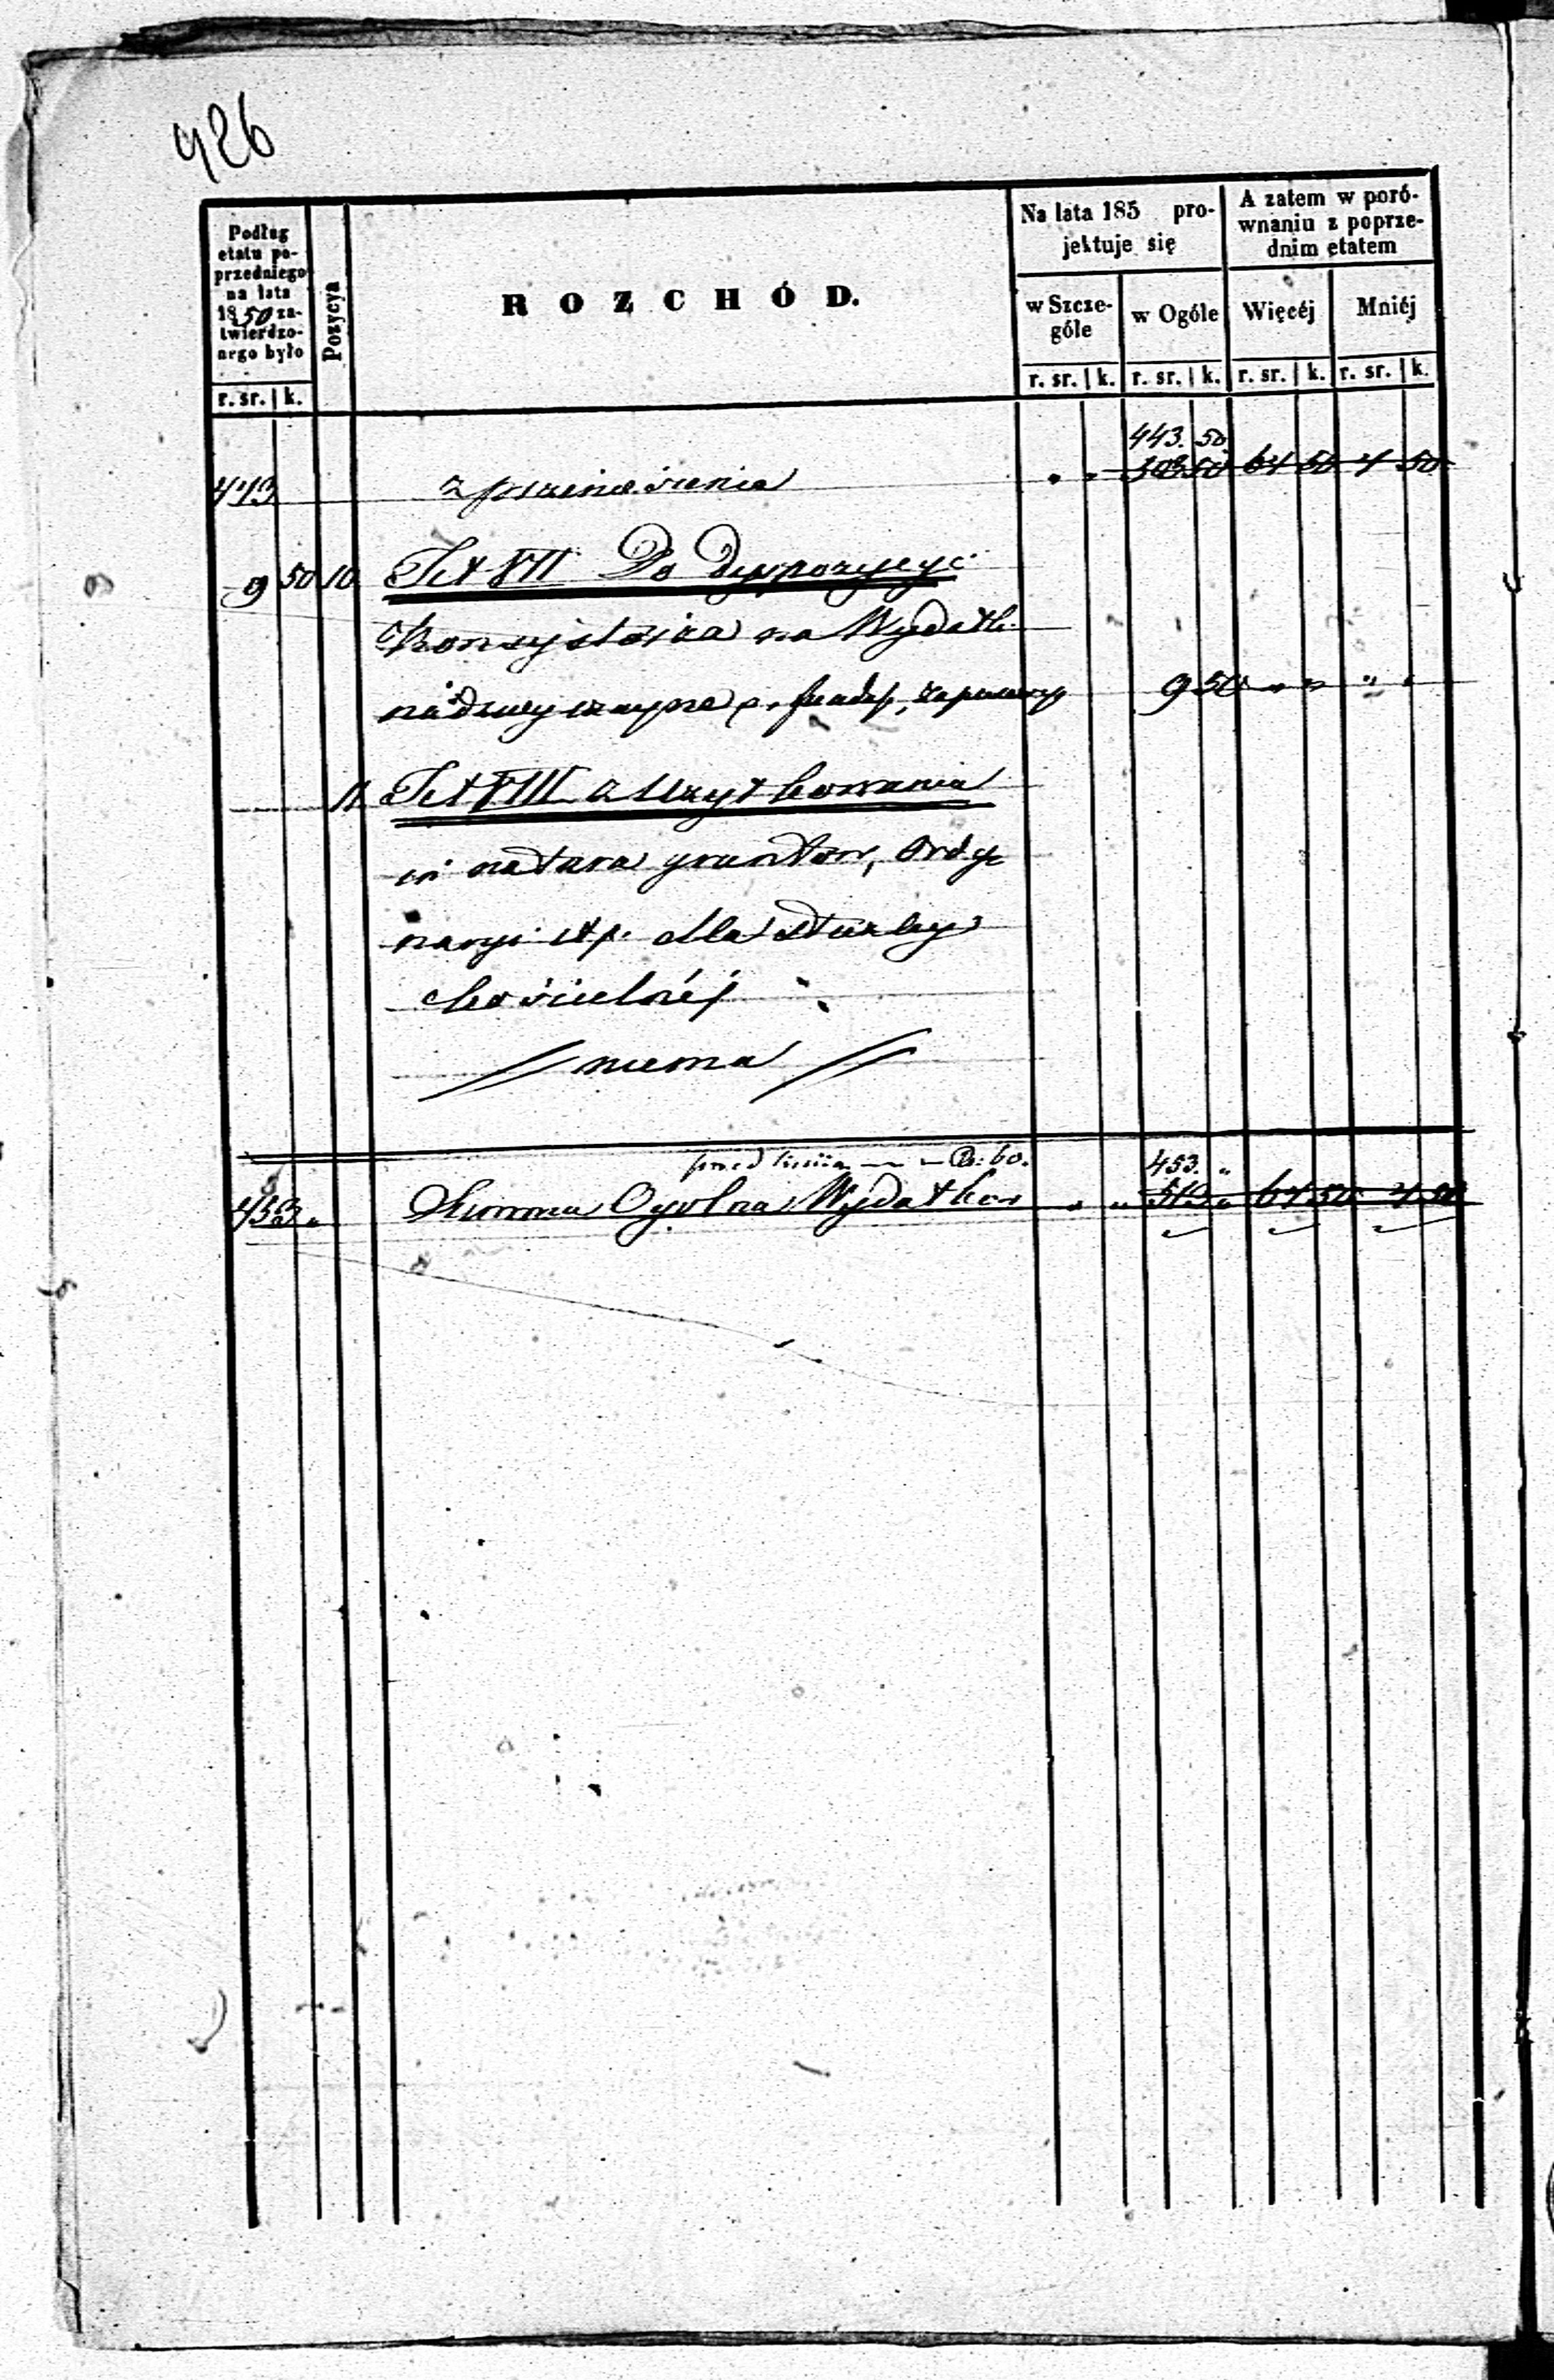 926
Podług etatu poprzedniego na lata 1850 zatwierdzonego było
Pozycya
ROZCHÓD.
Na lata 185 projektuje się
A zatem w porównaniu z poprzednim etatem
w Szczególe
w Ogóle
Więcéj
Mniéj
r. sr. k. r. sr. k. r. sr. k. r. sr. k. r. sr. k.
443. 50
443 z przeniesienia " " 503 50 64 50 4 50
9 50 10 Tit VII Do dyspozycyi
Konsystorza na Wydatki
nadzwyczajne 9 50 " " " "
11 Tit VIII z Użytkowania
in natura gruntów, Ordy
naryi itp. dla służby
kościelnéj
niema
przed linią — — Rs: 60.
453. "
453 " Summa Ogólna Wydatków " " 513 " 64 50 4 50